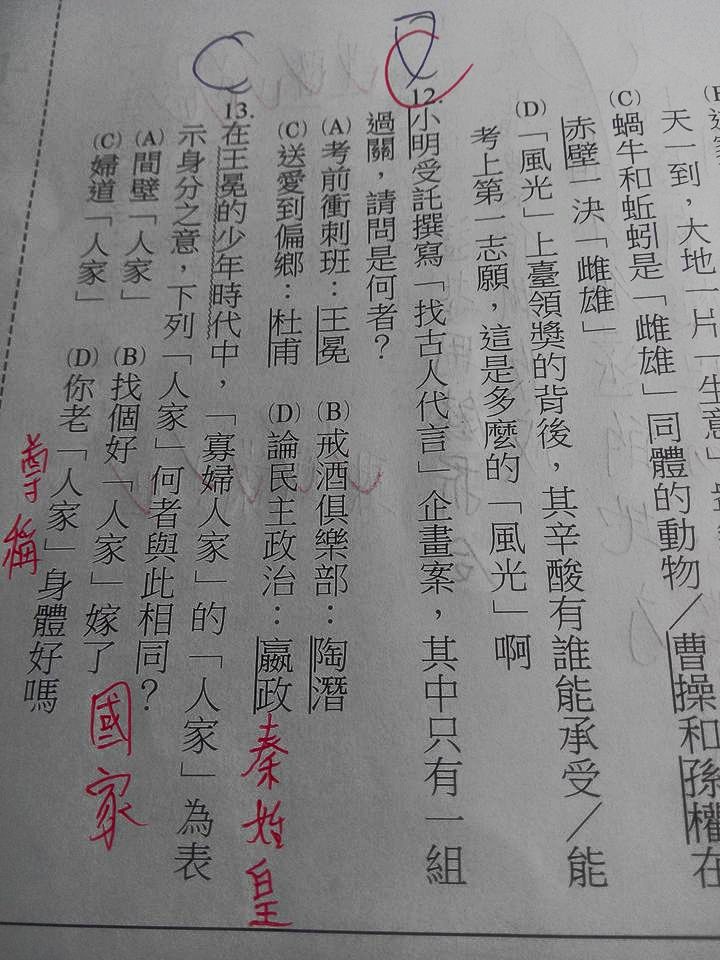 天一到，大地一片「生意」
(C)蝸牛和蚯蚓是「雌雄」同體的動物／曹操和孫權在
赤壁一決「雌雄」
(D)「風光」上臺領獎的背後，其辛酸有誰能承受／能
考上第一志願，這是多麼的「風光」啊
C 12.小明受託撰寫「找古人代言」企畫案，其中只有一組
過關，請問是何者？
(A)考前衝刺班：王冕 (B)戒酒俱樂部：陶潛
(C)送愛到偏鄉：杜甫 (D)論民主政治：嬴政 秦始皇
C 13.在王冕的少年時代中，「寡婦人家」的「人家」為表
示身分之意，下列「人家」何者與此相同？
(A)間壁「人家」 (B)找個好「人家」嫁了 國家
(C)婦道「人家」 (D)你老「人家」身體好嗎
尊稱